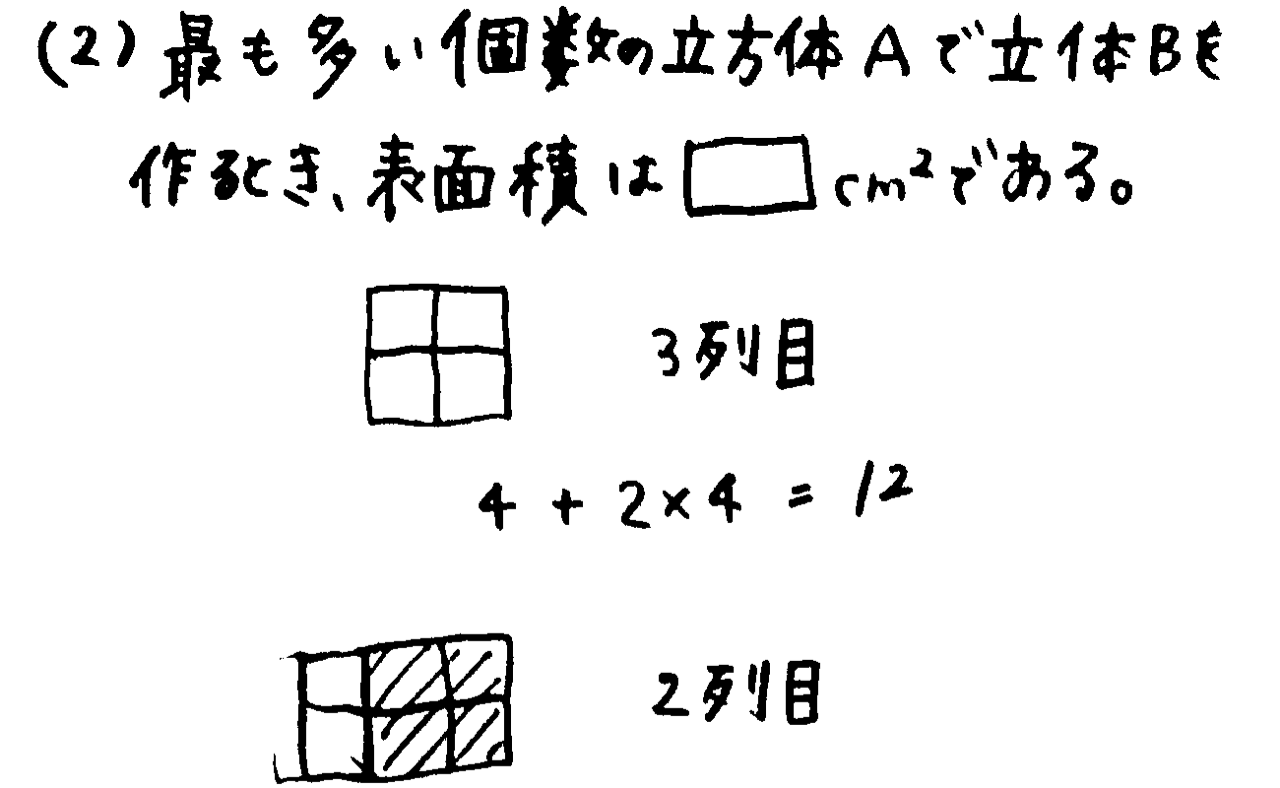 (2) 最も多い個数の立方体Aで立体Bを
作るとき、表面積は cm²である。
3列目
4 + 2×4 = 12
2列目